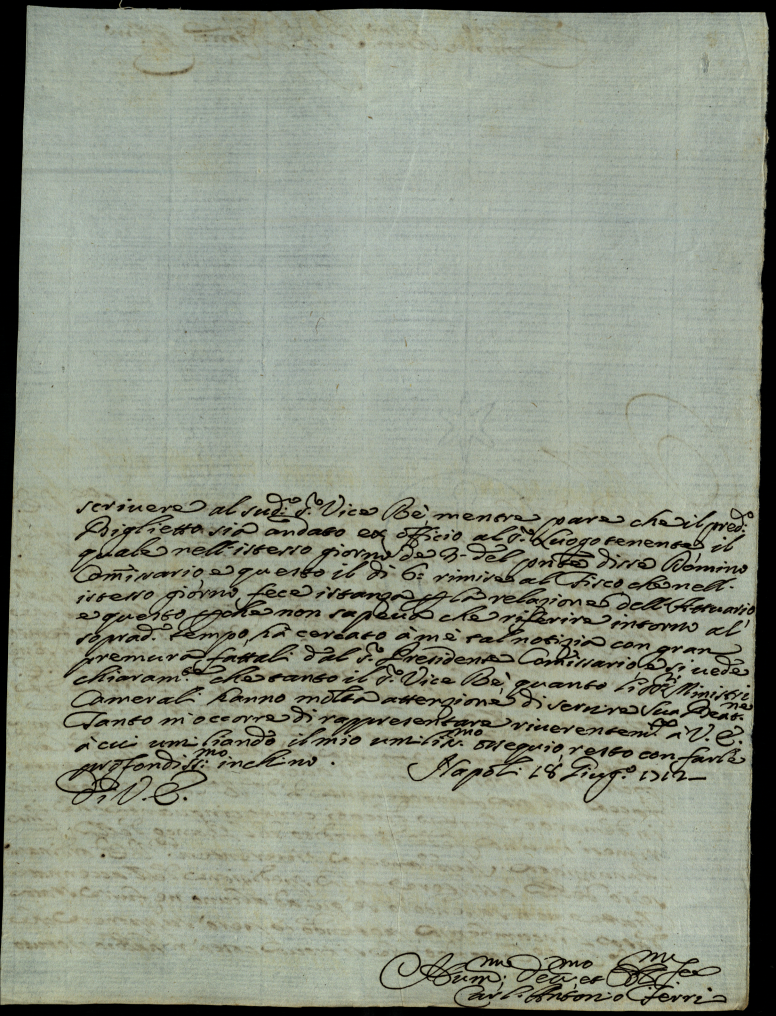 scrivere al sud.º S.r Vice Rè, mentre pare che il pred.º
Biglietto sia andato ex officio al S.r Luogotenente, il
quale nell'istesso giorno de 3. del pnte disse Nemine
Comissario e questo il di 6. rimise al fisco che nell-
istesso giorno fece istanza p la relazione dell'Attuario
e questo pche non sapeva che riferire intorno al
soprad.º tempo, hà cercato à mè tal notizia con gran
premura fattali dal S.r Presidente Comissario e si vede
chiaram.e che tanto il S.r Vice Rè, quanto li SS.ri Ministri
Camerali hanno molta attenzione di servire Sua Beat.ne
Tanto m'occorre di rappresentare riverentem.te à V. E.
à cui umiliando il mio umiliss.mo ossequio, resto con farle
profondiss.mo inchino.
Napoli 18 Giug.º 1712
Di V. E.
Hum.mo Dev.mo et Obl.mo Ser
Carl. Antonio Ferri